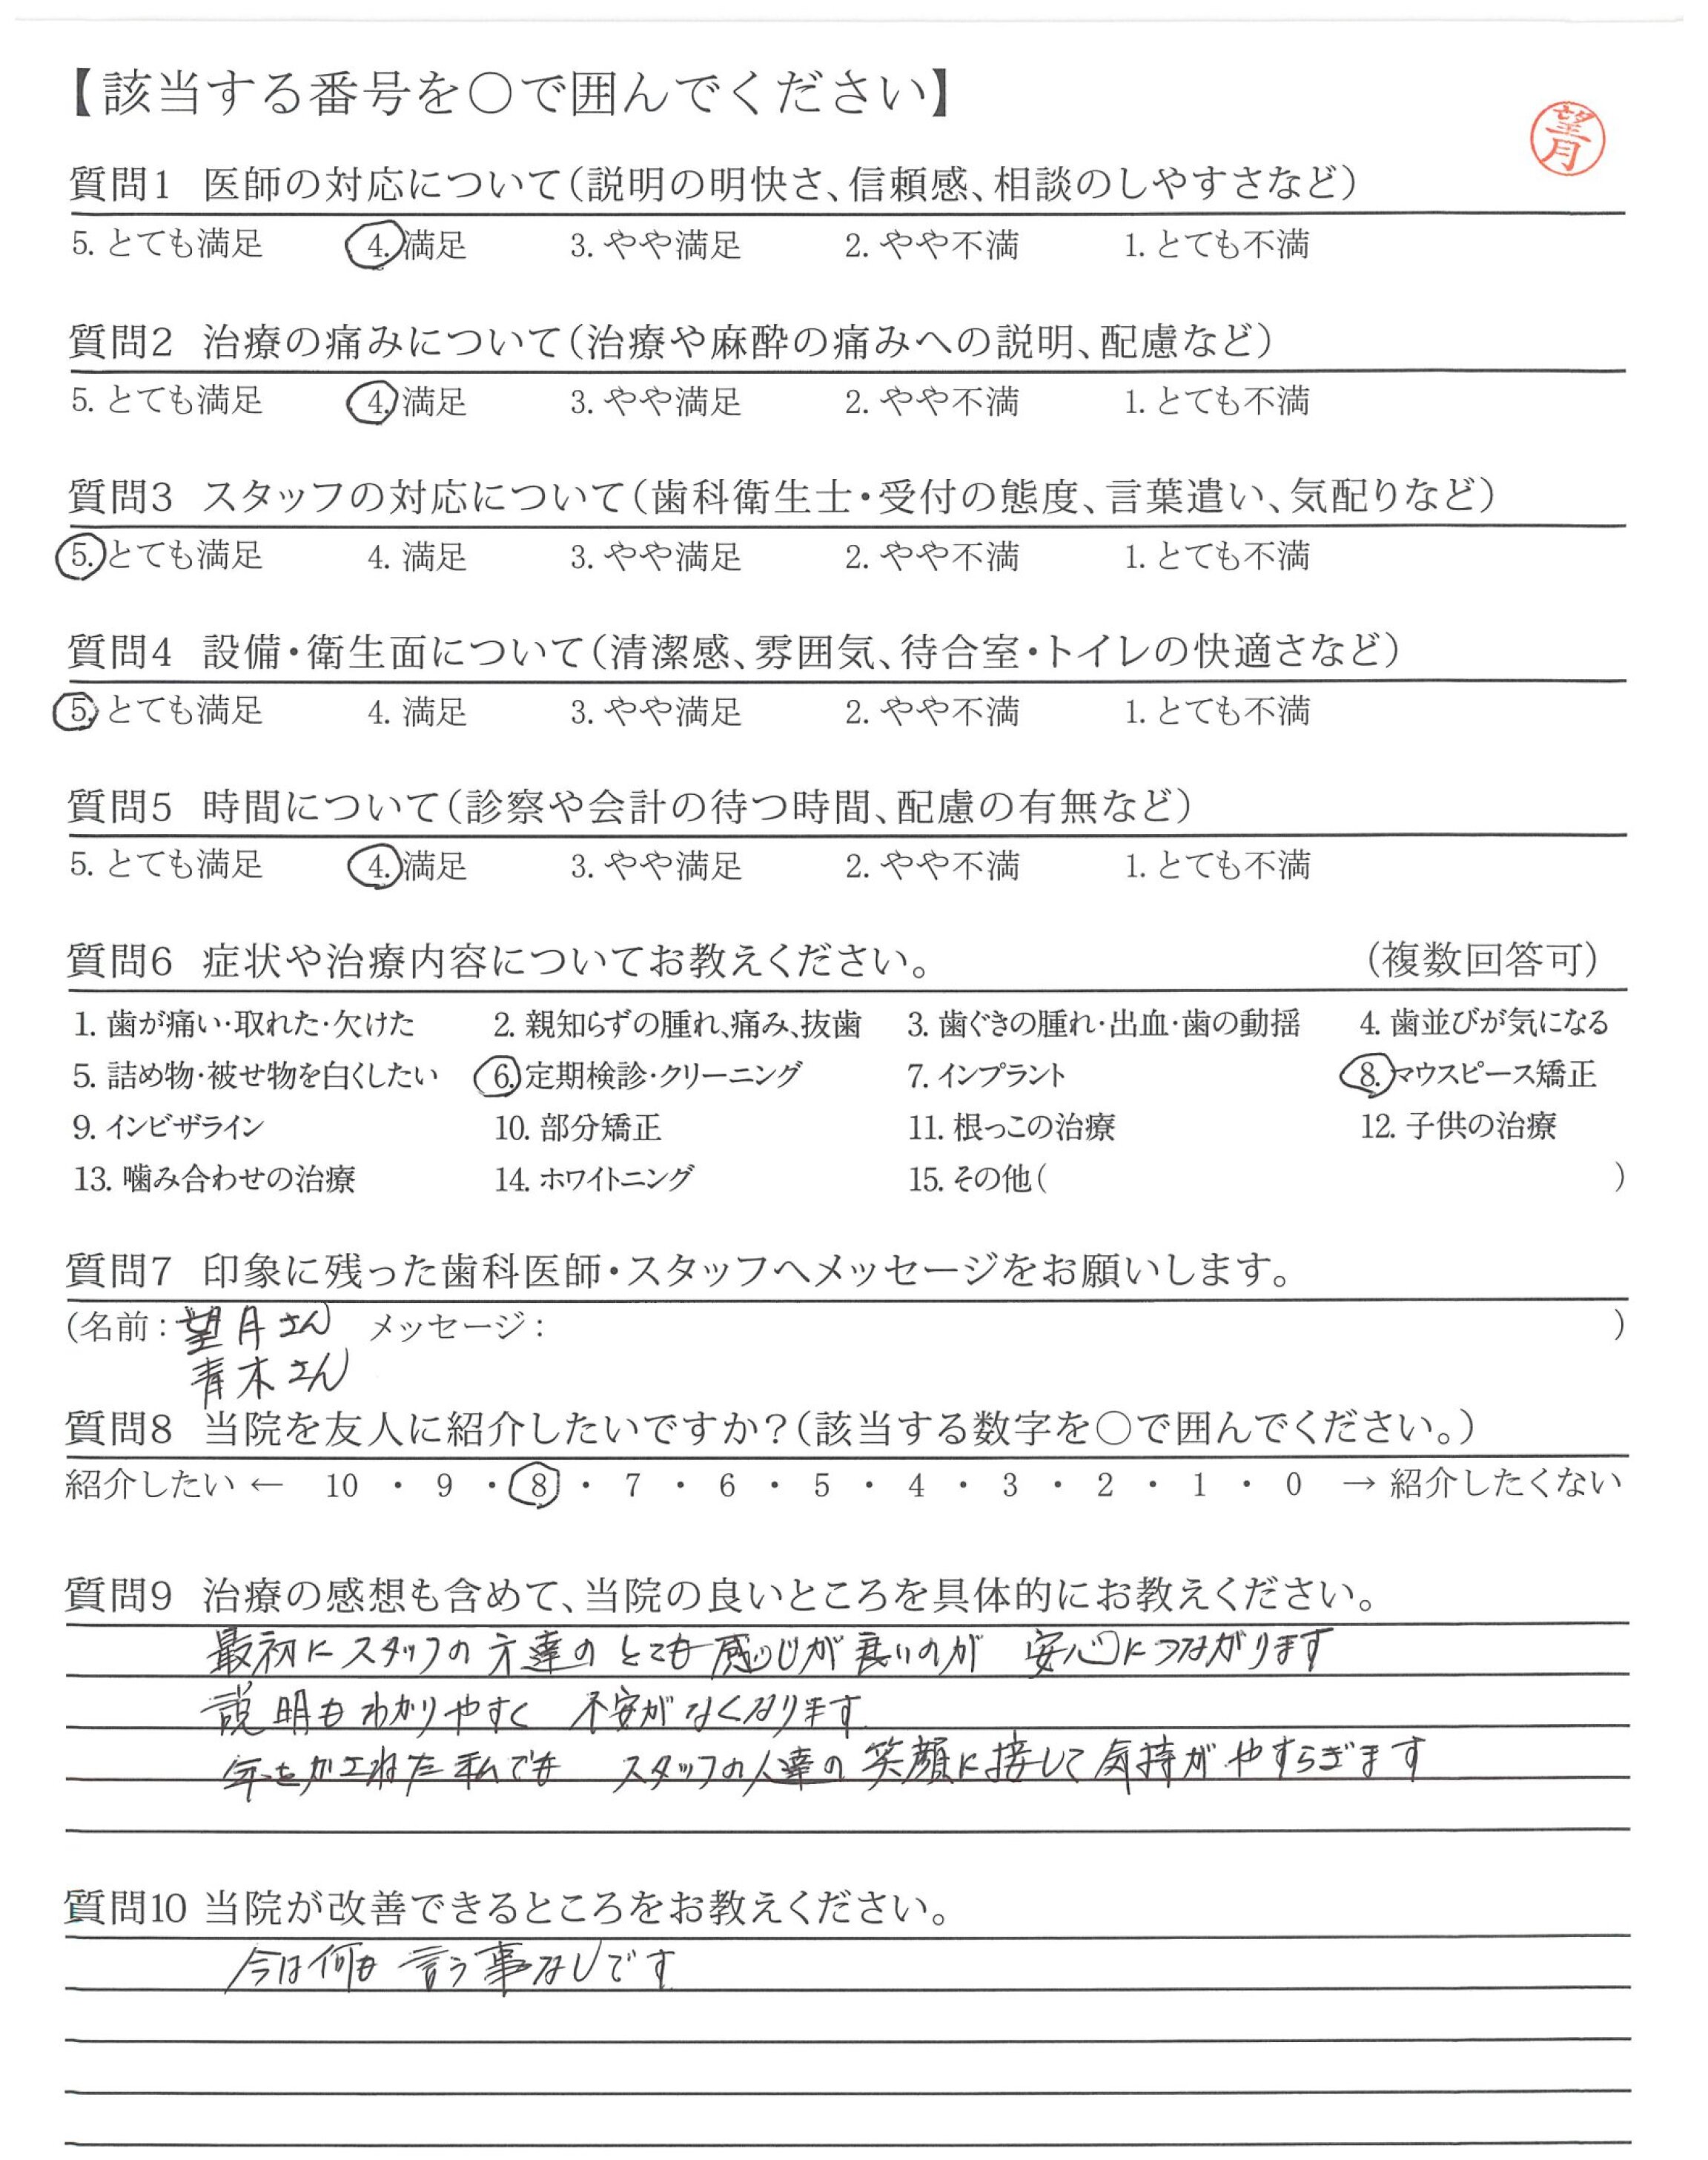 【該当する番号を〇で囲んでください】
望月
質問1 医師の対応について(説明の明快さ、信頼感、相談のしやすさなど)
5. とても満足 4. 満足 3. やや満足 2. やや不満 1. とても不満
質問2 治療の痛みについて(治療や麻酔の痛みへの説明、配慮など)
5. とても満足 4. 満足 3. やや満足 2. やや不満 1. とても不満
質問3 スタッフの対応について(歯科衛生士・受付の態度、言葉遣い、気配りなど)
5. とても満足 4. 満足 3. やや満足 2. やや不満 1. とても不満
質問4 設備・衛生面について(清潔感、雰囲気、待合室・トイレの快適さなど)
5. とても満足 4. 満足 3. やや満足 2. やや不満 1. とても不満
質問5 時間について(診察や会計の待つ時間、配慮の有無など)
5. とても満足 4. 満足 3. やや満足 2. やや不満 1. とても不満
質問6 症状や治療内容についてお教えください。 (複数回答可)
1. 歯が痛い・取れた・欠けた 2. 親知らずの腫れ、痛み、抜歯 3. 歯ぐきの腫れ・出血・歯の動揺 4. 歯並びが気になる
5. 詰め物・被せ物を白くしたい 6. 定期検診・クリーニング 7. インプラント 8. マウスピース矯正
9. インビザライン 10. 部分矯正 11. 根っこの治療 12. 子供の治療
13. 噛み合わせの治療 14. ホワイトニング 15. その他( )
質問7 印象に残った歯科医師・スタッフへメッセージをお願いします。
(名前:望月さん メッセージ: )
青木さん
質問8 当院を友人に紹介したいですか?(該当する数字を〇で囲んでください。)
紹介したい ← 10 ・ 9 ・ 8 ・ 7 ・ 6 ・ 5 ・ 4 ・ 3 ・ 2 ・ 1 ・ 0 → 紹介したくない
質問9 治療の感想も含めて、当院の良いところを具体的にお教えください。
最初にスタッフの方達のとても感じが良いのが 安心につながります
説明もわかりやすく 不安がなくなります
年をかさねた私でも スタッフの人達の笑顔に接して気持がやすらぎます
質問10 当院が改善できるところをお教えください。
今は何も言う事なしです